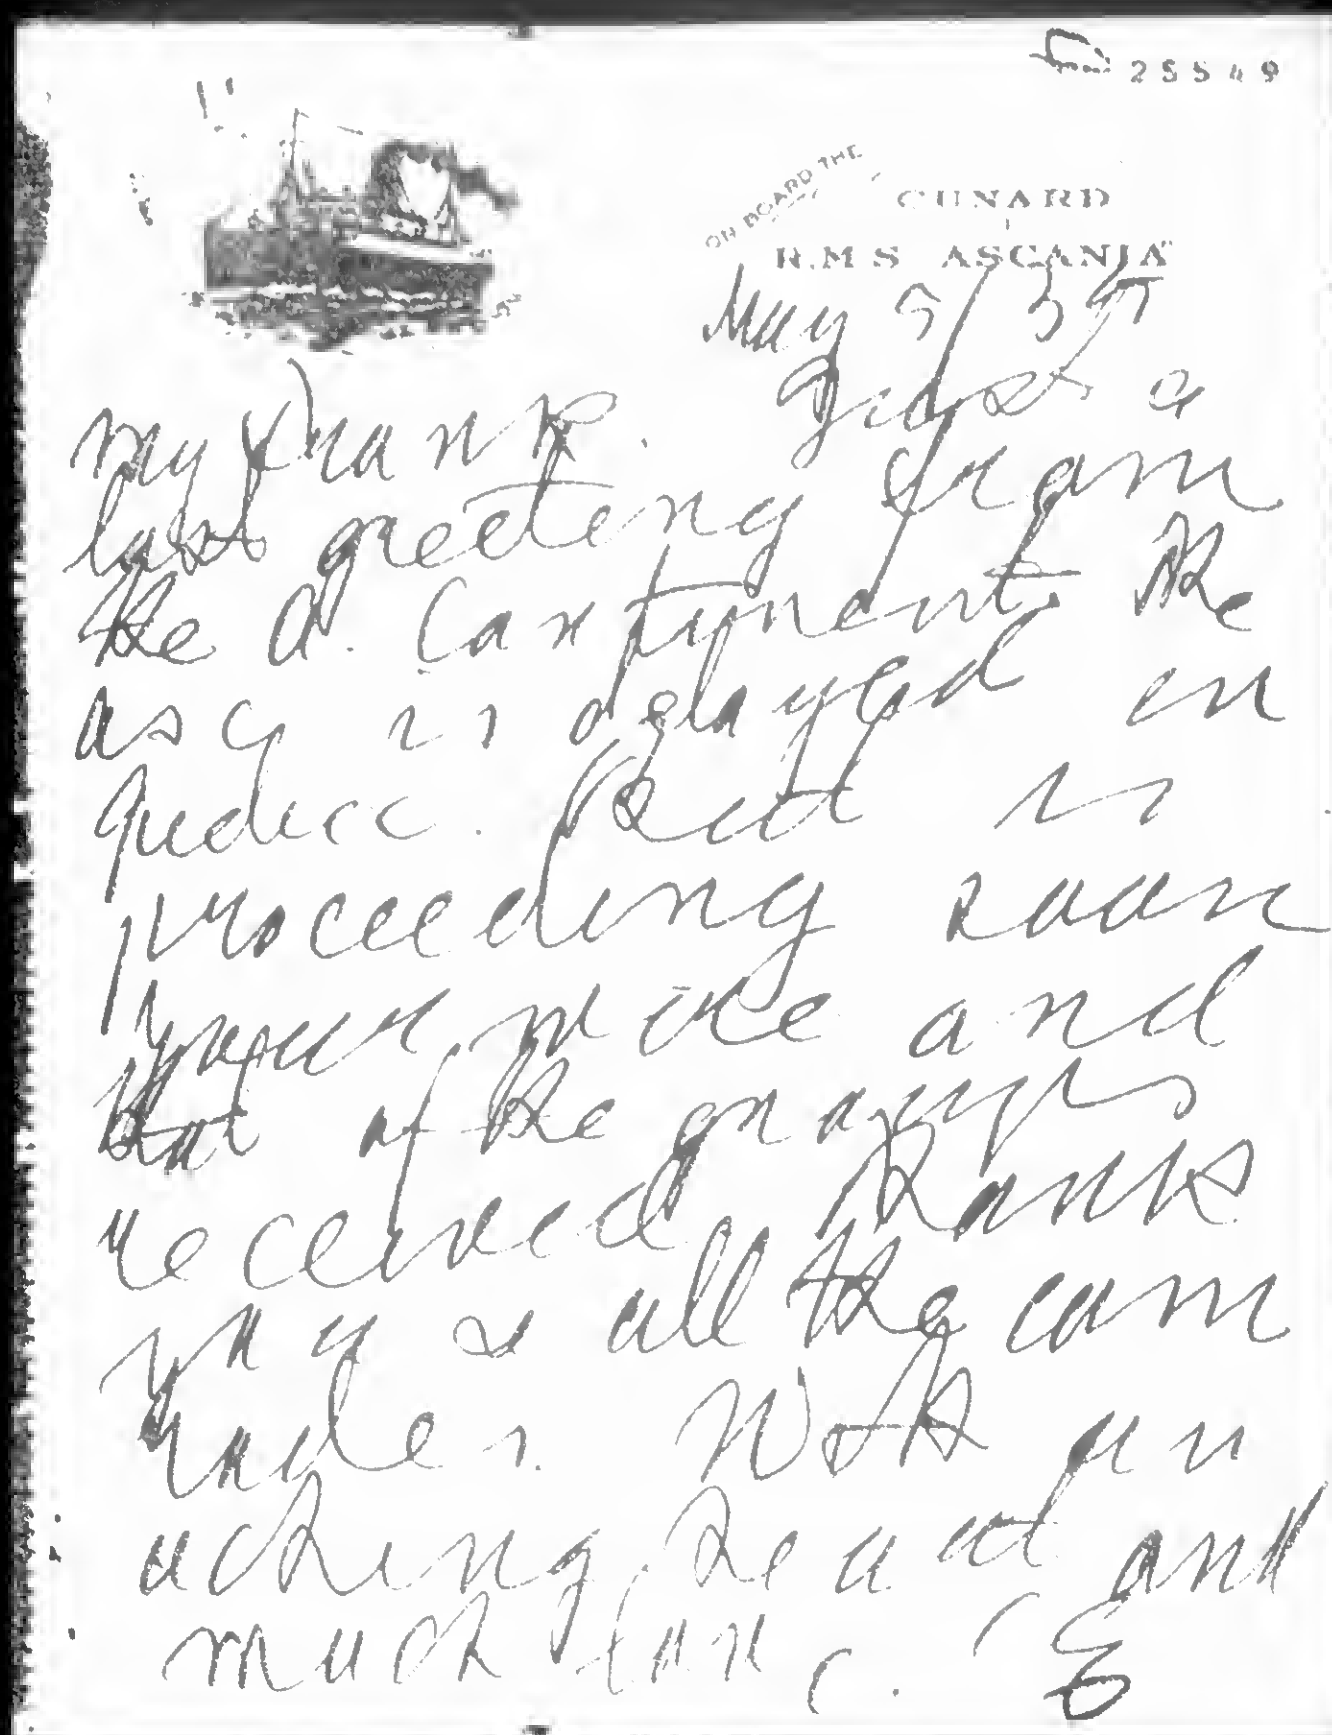 25549
ON BOARD THE
CUNARD
R.M.S "ASCANIA"
May 5/35
my Frank. Just a
last greeting from
the A. Continent. The
asc is delayed in
Quebec. But is
proceeding soon
your wire and
that of the groups
received. Thanks
you & all the com
rades. With an
aching heart and
much love. E